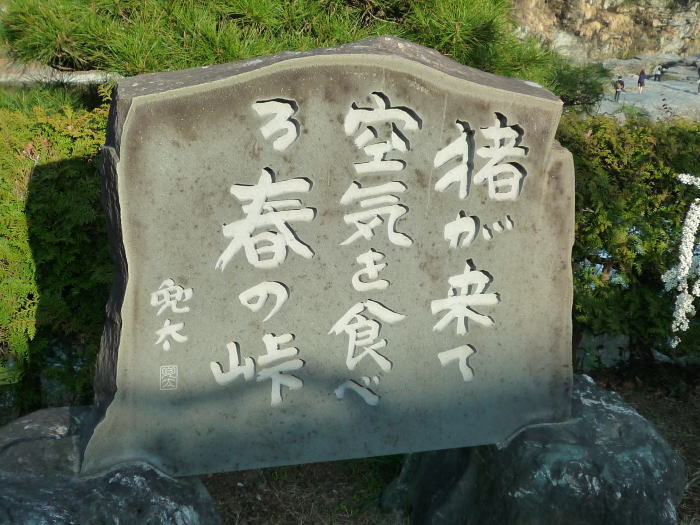 猪が来て
空気を食べ
る春の峠
兜太
兜太